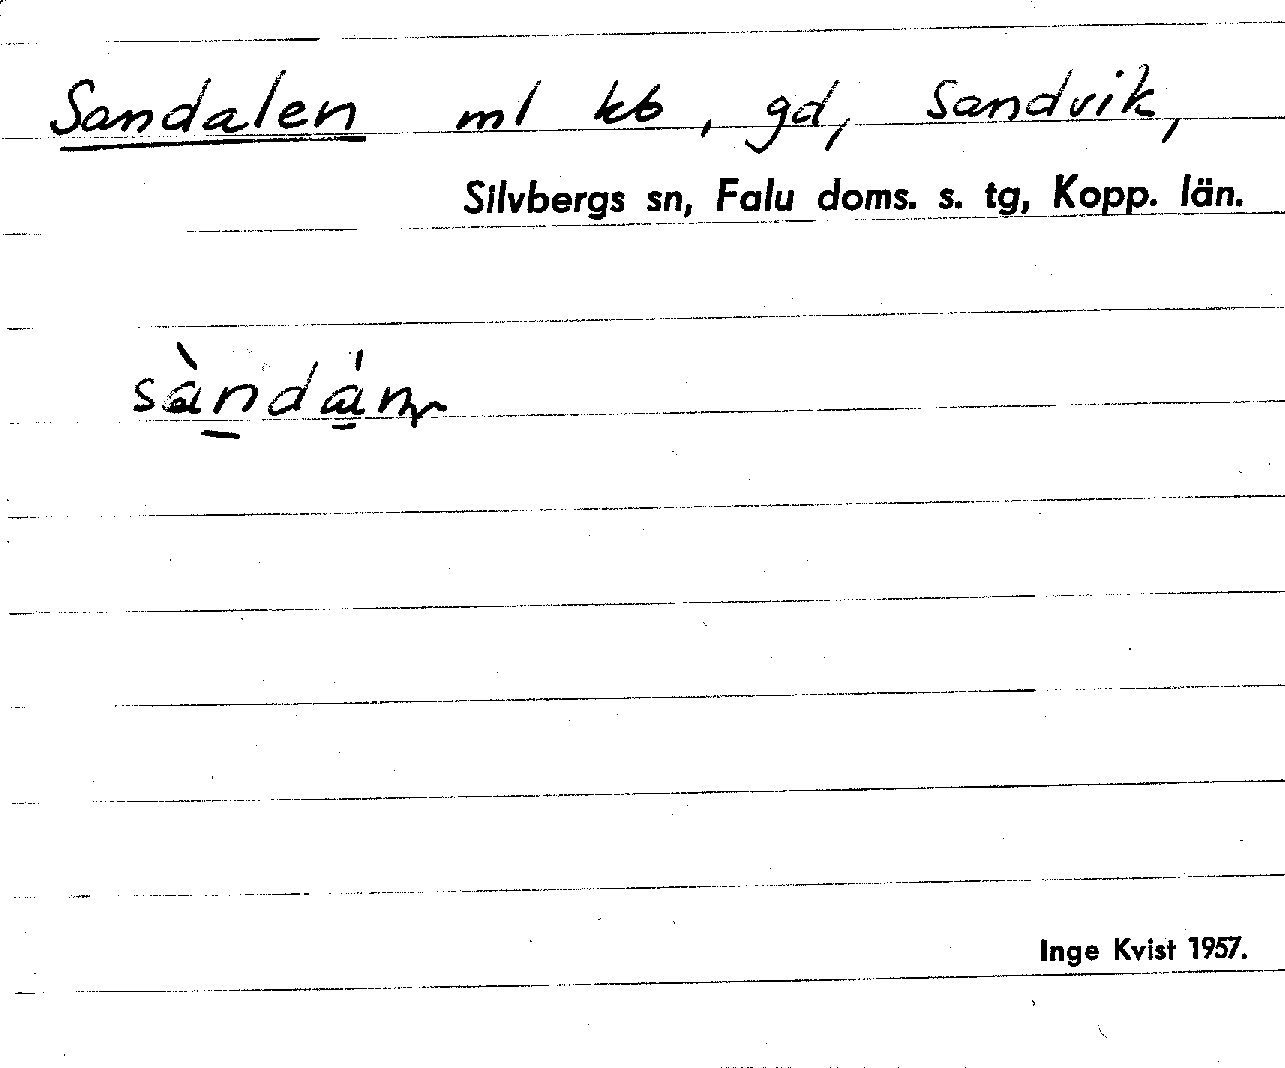 Sandalen ml kb, gd, Sandvik,
Silvbergs sn, Falu doms. s. tg, Kopp. län.
sàndán
Inge Kvist 1957.